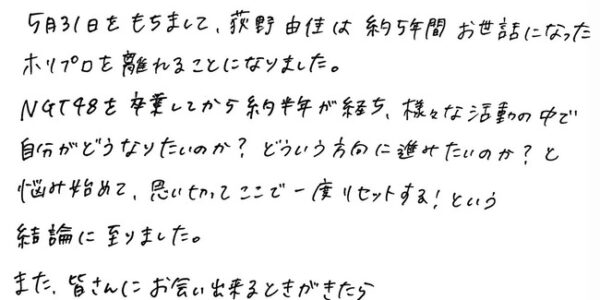 5月31日をもちまして、荻野由佳は約5年間お世話になった
ホリプロを離れることになりました。
NGT48を卒業してから約半年が経ち、様々な活動の中で
自分がどうなりたいのか?どういう方向に進みたいのか?と
悩み始めて、思い切ってここで一度リセットする!という
結論に至りました。
また、皆さんにお会い出来るときがきたら